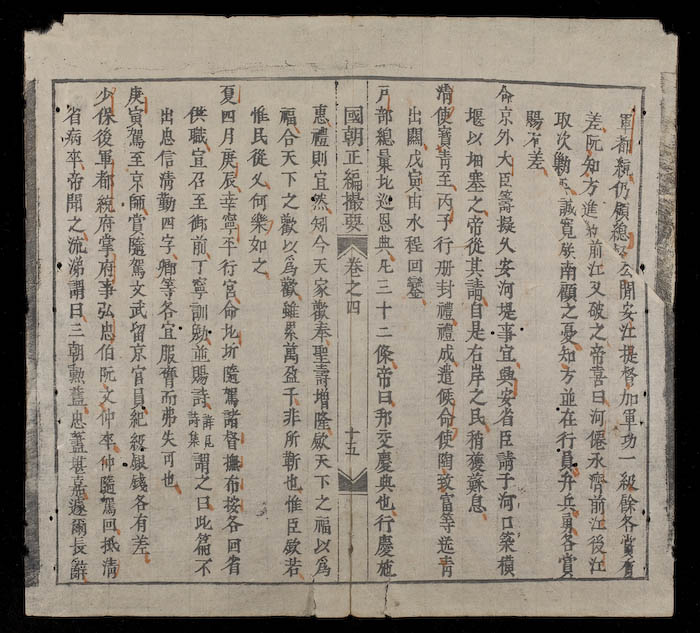 軍都統仍領總 玄聞安江提督加軍功一級餘各賞賚有
差阮知方進 前江又破之帝喜曰河僊永濟前江後江
取次勦 誠寬朕南顧之憂知方並在行員弁兵勇各賞
賜有差
命京外大臣籌擬久安河堤事宜興安省臣請于河口築橫
堰以堙塞之帝從其請自是右岸之民稍獲蘇息
清使寶清至丙子行册封禮禮成遣使命使陶致富等送青
出關戊寅由水程回鑾
戸部總彙北巡恩典凡三十二條帝曰邦交慶典也行慶施
惠禮則宜然矧今天家歡奉聖壽增隆歛天下之福以為
福合天下之歡以爲歡雖累萬盈千非所靳也惟臣欽若
惟民從乂何樂如之
夏四月庚辰幸寧平行宮命北圻隨駕諸督撫布按各回省
供職宜召至御前丁寧訓勉並賜詩詳見詩集謂之曰此篇不
出忠信清勤四字卿等各宜服膺而弗失可也
庚寅駕至京師賞隨駕文武留京官員紀級銀錢各有差
少保後軍都統府掌府事弘忠伯阮文仲卒仲隨駕回抵清
省病卒帝聞之流涕謂曰三朝勲藎忠藎堪嘉遽爾長辭
國朝正編撮要 卷之四 十五